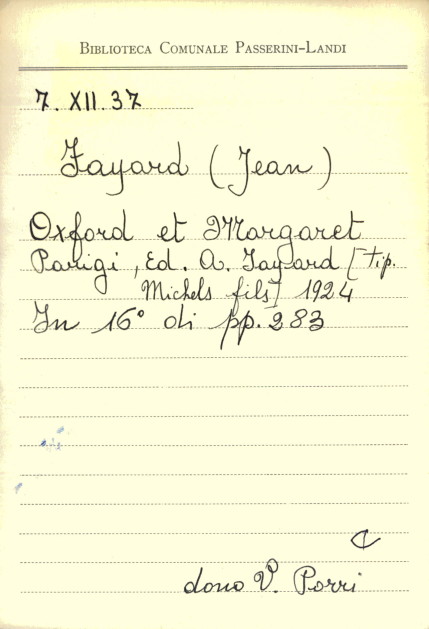 Biblioteca Comunale Passerini-Landi
7. XII. 37
Fayard (Jean)
Oxford et Margaret
Parigi, Ed. A. Fayard [tip.
Michels fils] 1924
In 16° di pp. 283
C
dono V. Porri